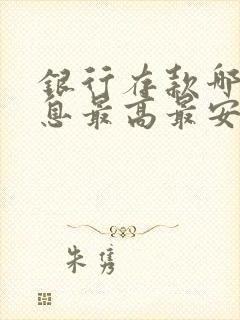 银行存款哪
息最高最安
朱隽